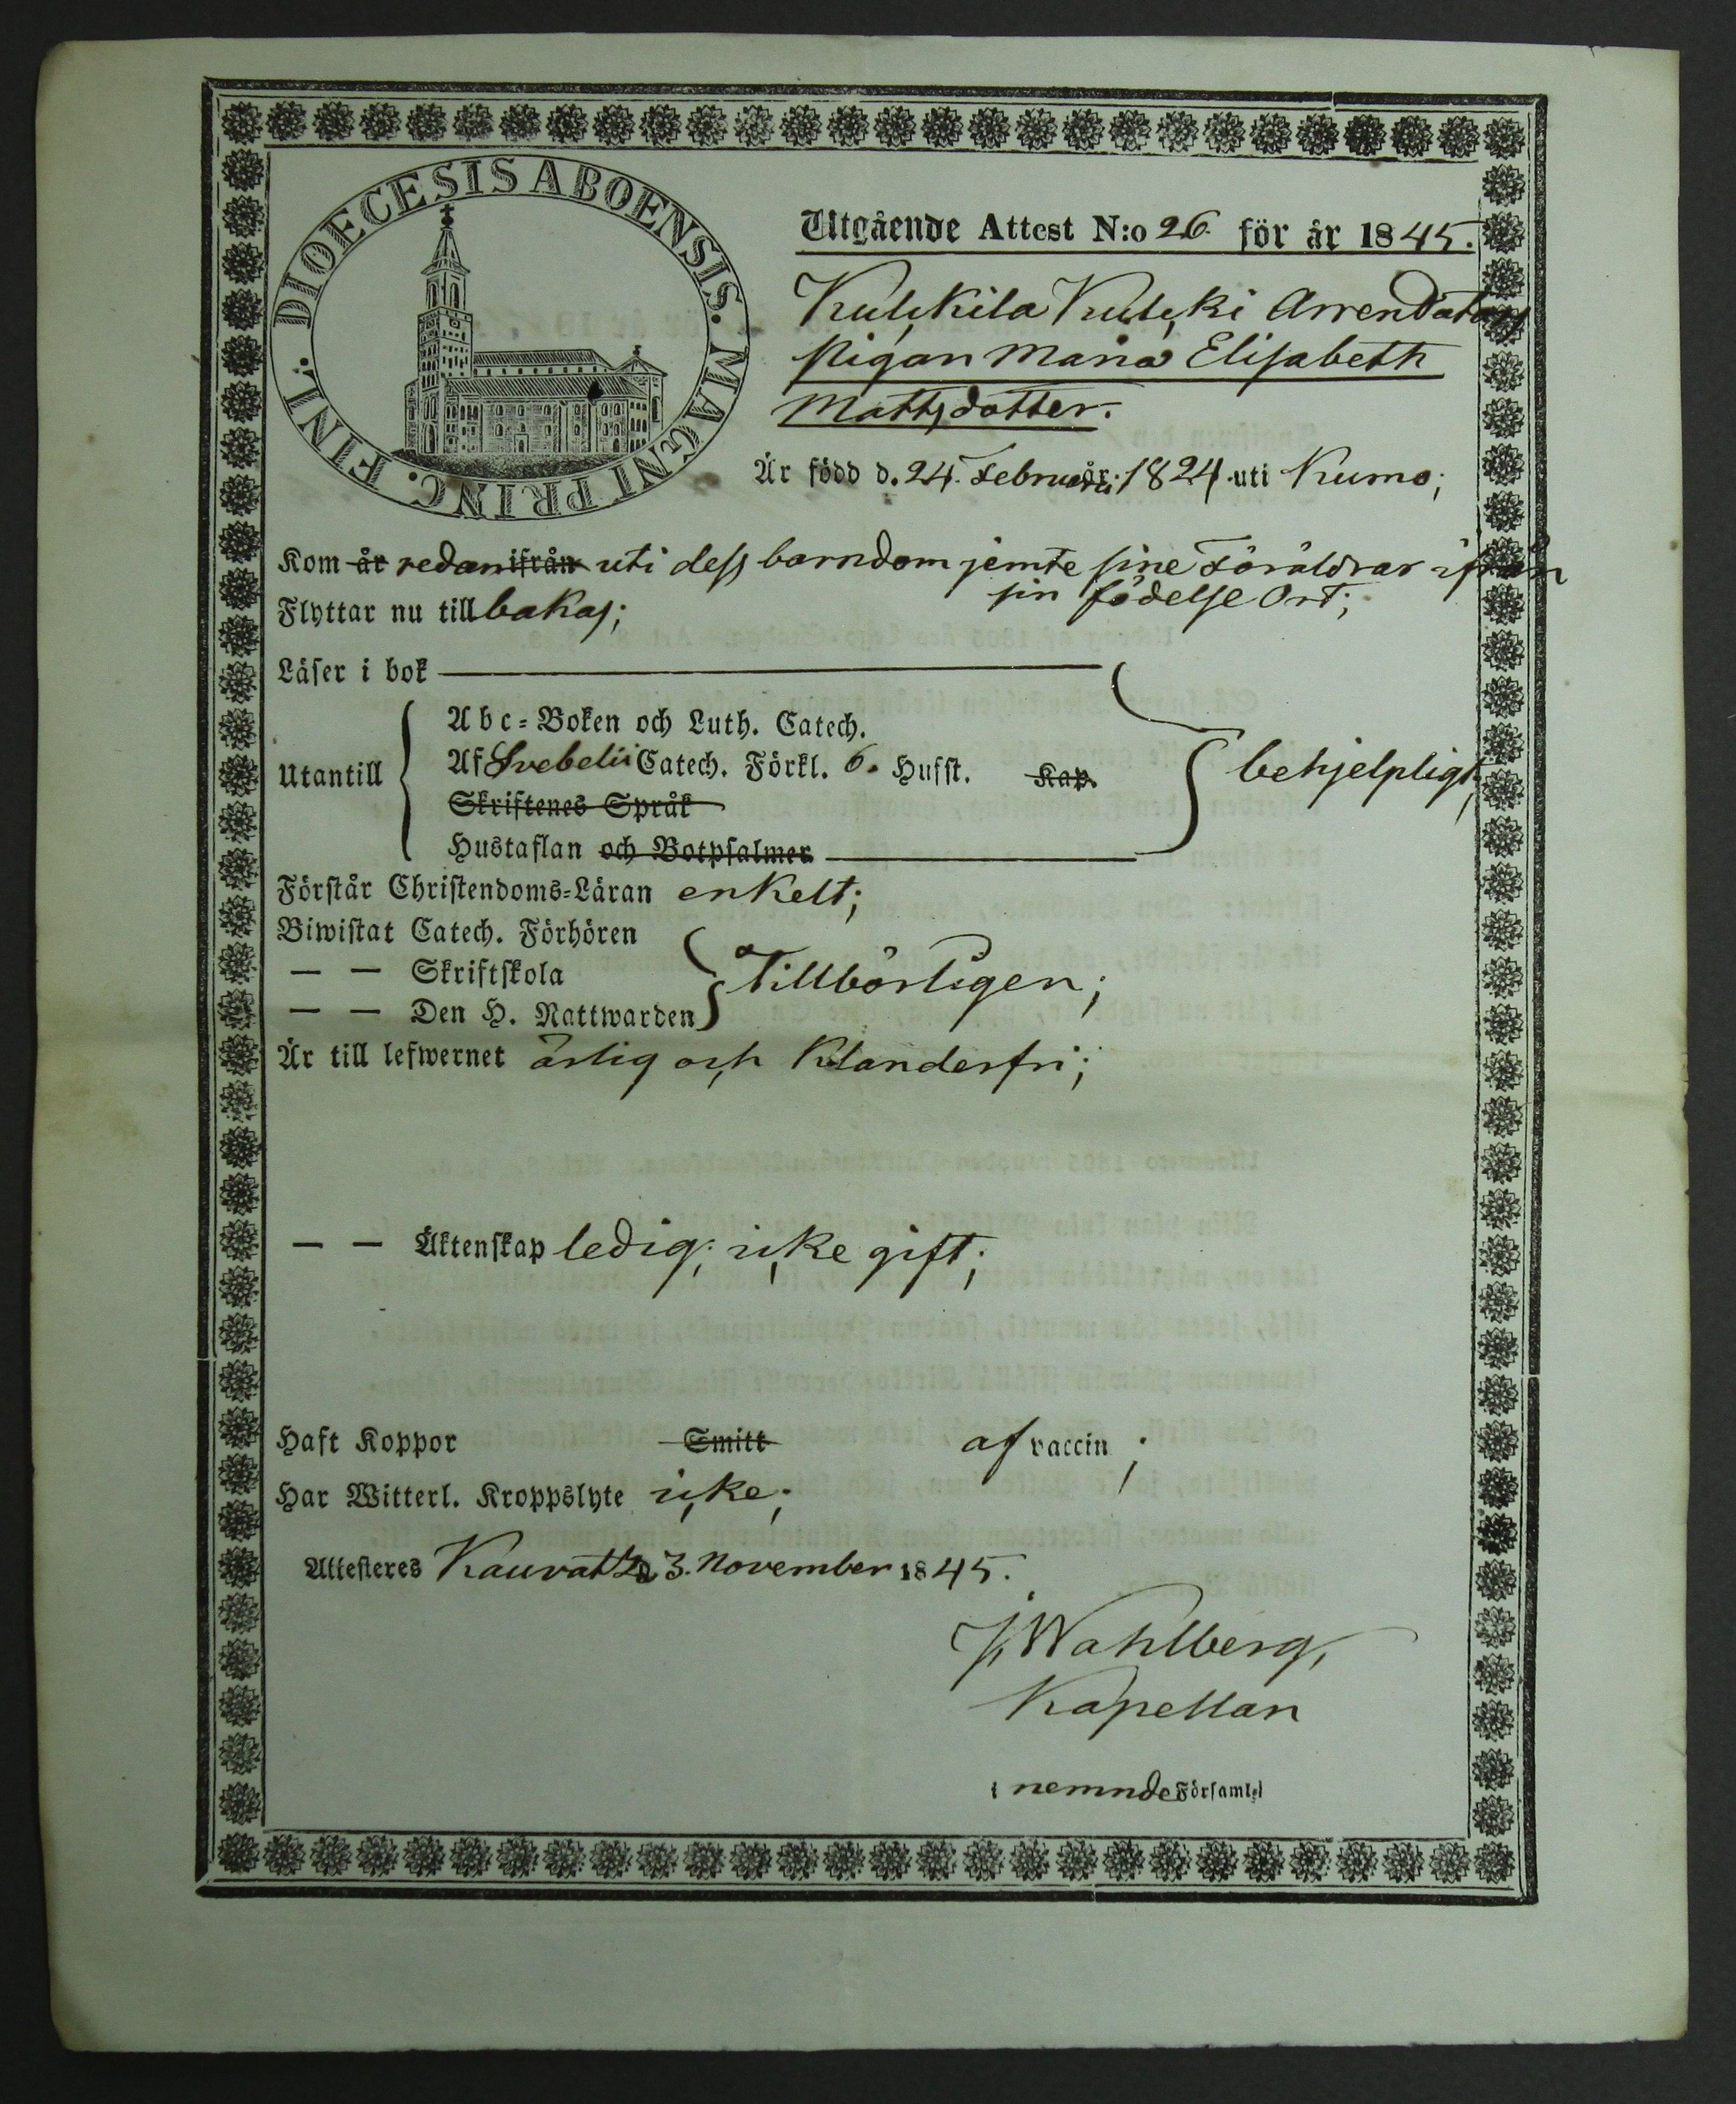 DIOECESIS ABOENSIS. MAGNI PRINC. FINL.
Utgående Attest N:o 26 för år 1845.
Arrendators
Pigan Maria Elisabeth
Mattsdotter.
Är född d. 24. Februarii 1824 uti Kumo;
Kom år redan ifrån uti dess barndom jemte sine Föräldrar ifrån
sin födelse Ort;
Flyttar nu tillbakas;
Läser i bok
Utantill
Abc-Boken och Luth. Catech.
Af Svebelii Catech. Förkl. 6. Hufst. Kap.
behjelpligt;
Skriftenes Språk
Hustaflan och Botpsalmer
Förstår Christendoms-Läran enkelt;
Biwistat Catech. Förhören
— — Skriftskola
Tillbörligen;
— — Den H. Nattwarden
Är till lefwernet ärlig och klanderfri;
— — Äktenskap ledig; icke gift;
Haft Koppor Smitt af vaccin;
Har Witterl. Kroppslyte icke;
Attesteres Kauvatza d. 3. November 1845.
J. Wahlberg,
Kapellan
i nemnde Församl.